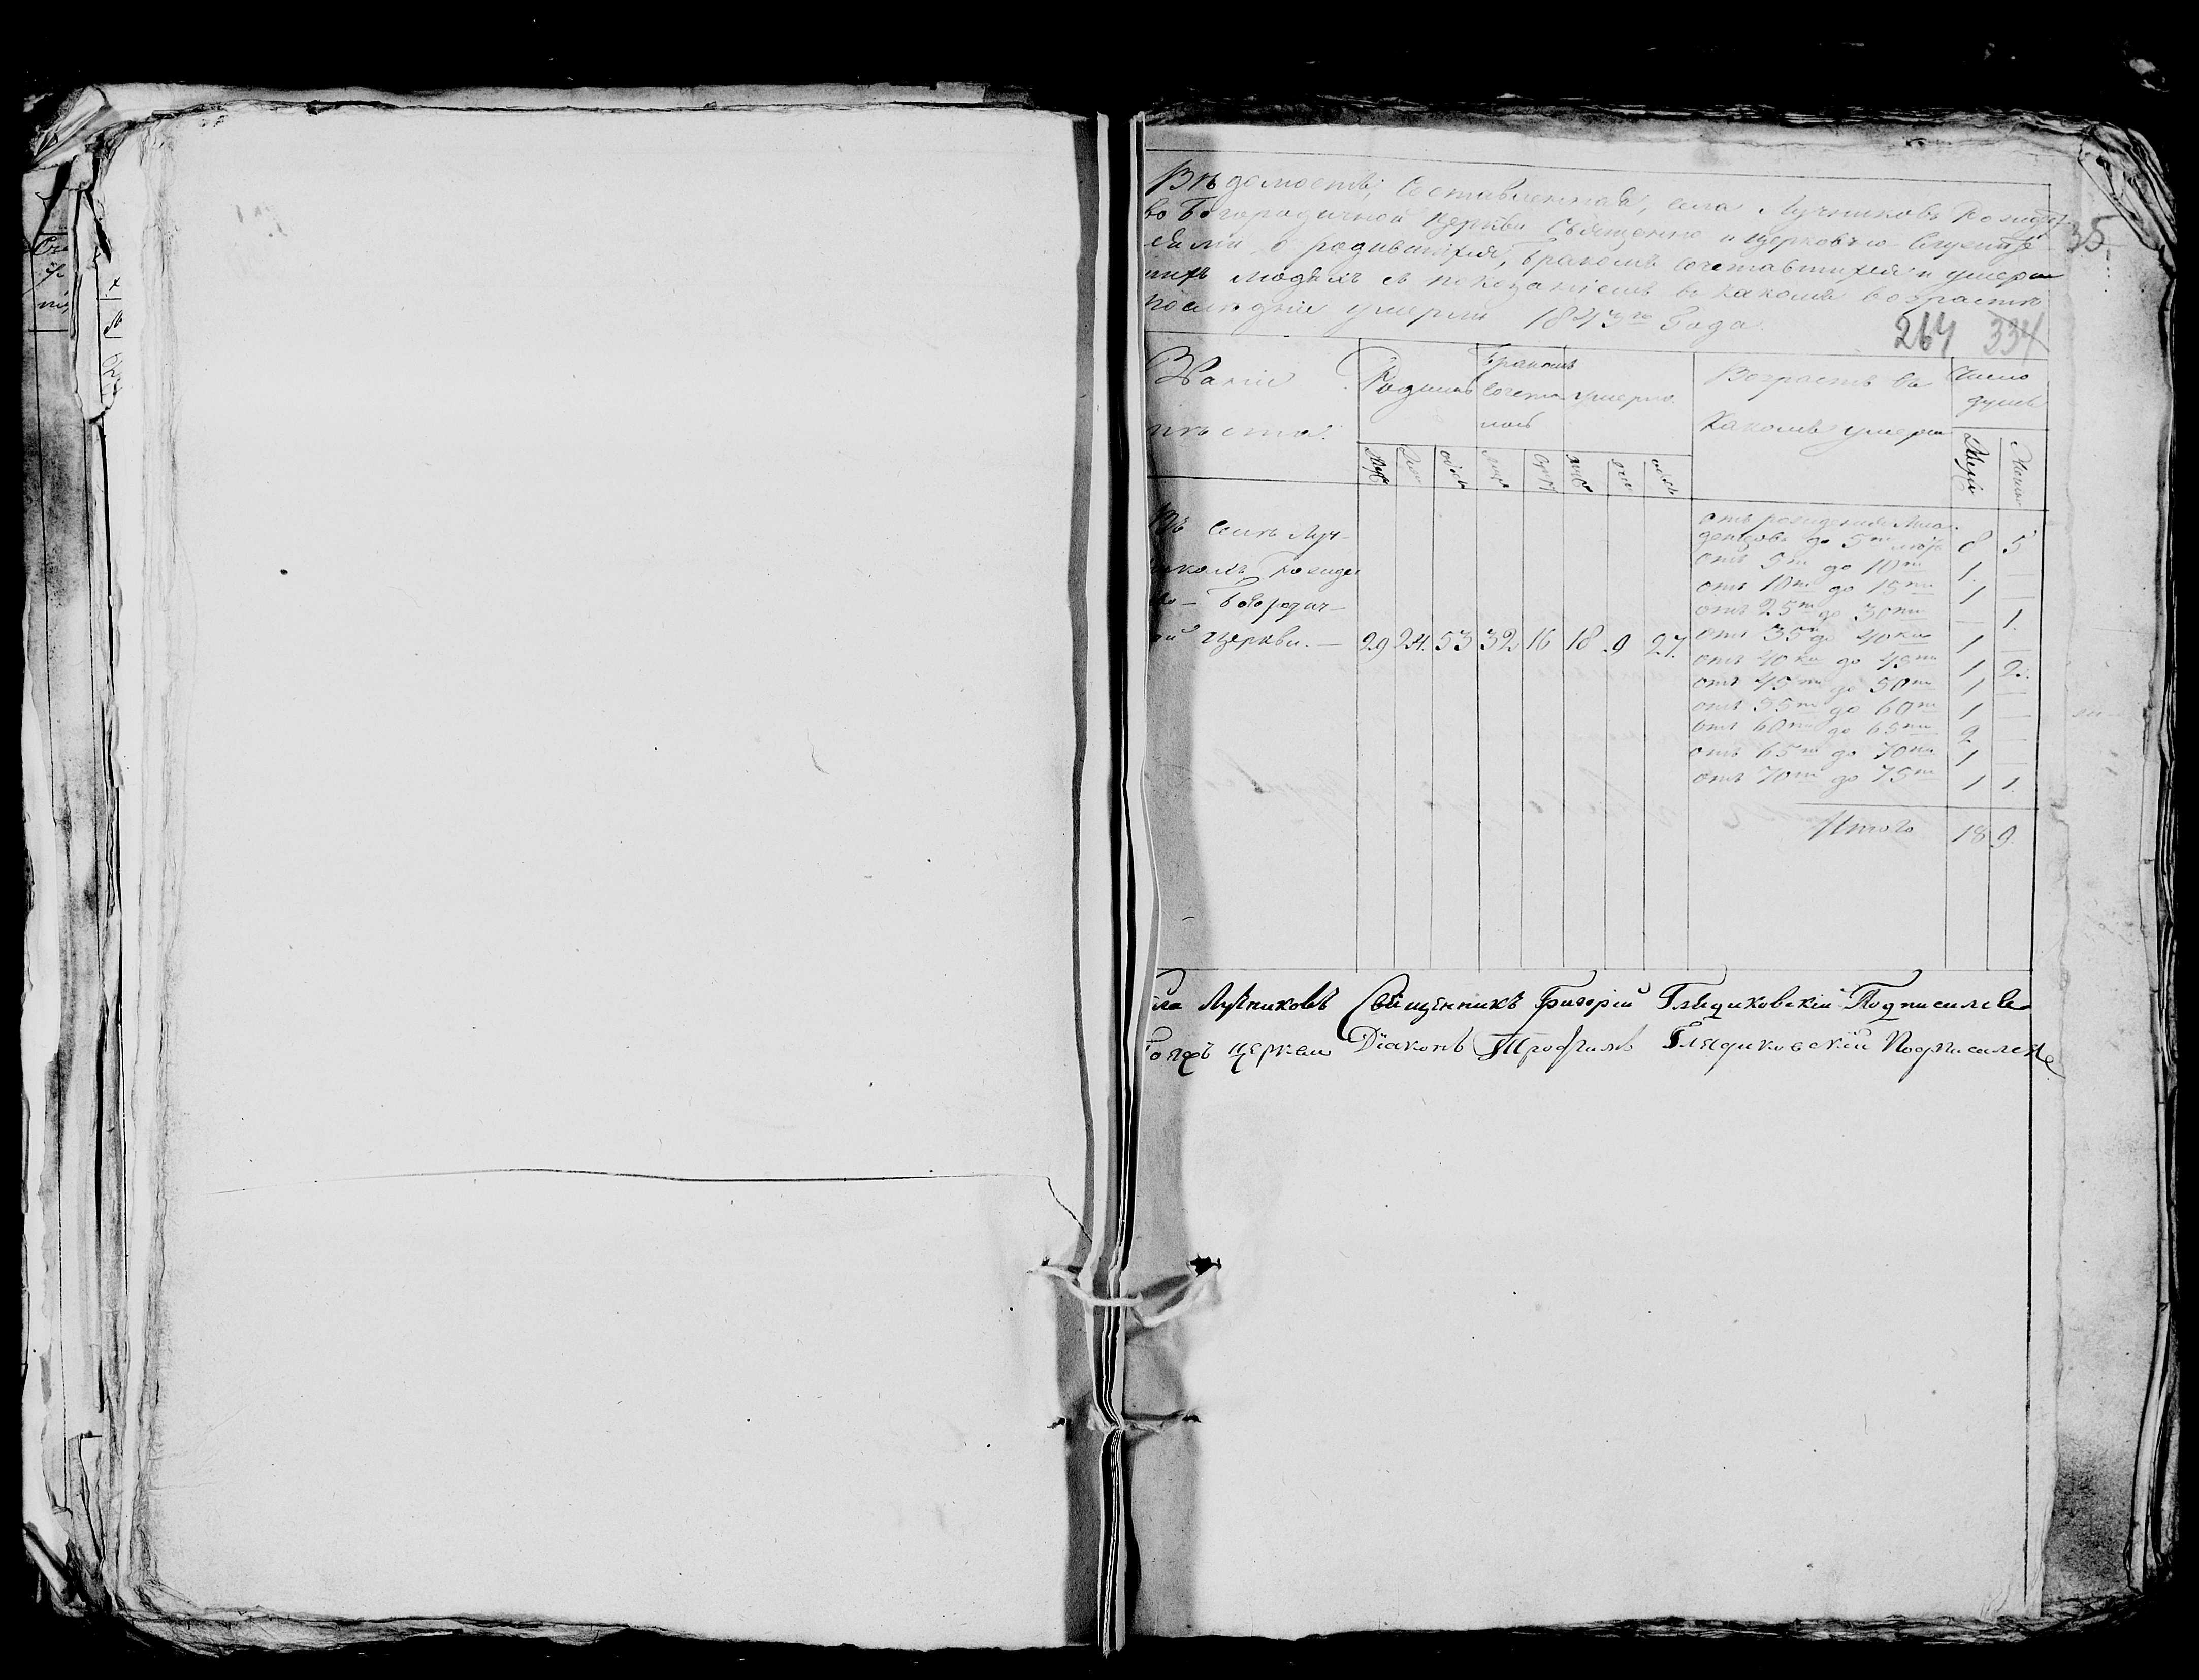 Вѣдомость, Составленная, села Лучниковъ Рожде
во Богородичной Церкви Священно и церковно Служите
лями о родившихся, Бракомъ сочетавшихся и умерш
ихъ людяхъ съ показаніемъ въ какомъ возрастѣ
послѣдніе умерли 1843го Года.
35
264 334
Званіе мѣста.
Родилось
Бракомъ сочета лось
умерло.
Возрастъ въ Какомъ умерли
Число душъ
Муж
Жен
обое
Муж
Жен
обое
Муж
Женс
Въ Селѣ Луч-
никахъ Рожде
во - Богородич-
ной Церкви. — 29 24. 53 32 16 18 9 27.
отъ рожденія Мла-
денцовъ до 5ти лѣтъ 8 5
отъ 5ти до 10ти 1. —
отъ 10ти до 15ти 1 —
отъ 25ти до 30ти — 1.
отъ 35ти до 40ка 1 —
отъ 40ка до 45ти 1 2.
отъ 45ти до 50ти 1 —
отъ 55ти до 60ти 1 —
отъ 60ти до 65ти 2 —
отъ 65ти до 70ти 1
отъ 70ти до 75ти 1 1.
Итого 18 9.
ла Лучниковъ Священникъ Григорій Глядиковскій Подписался
Тояжъ церкви Діаконъ Трофимъ Глядиковскій Подписался